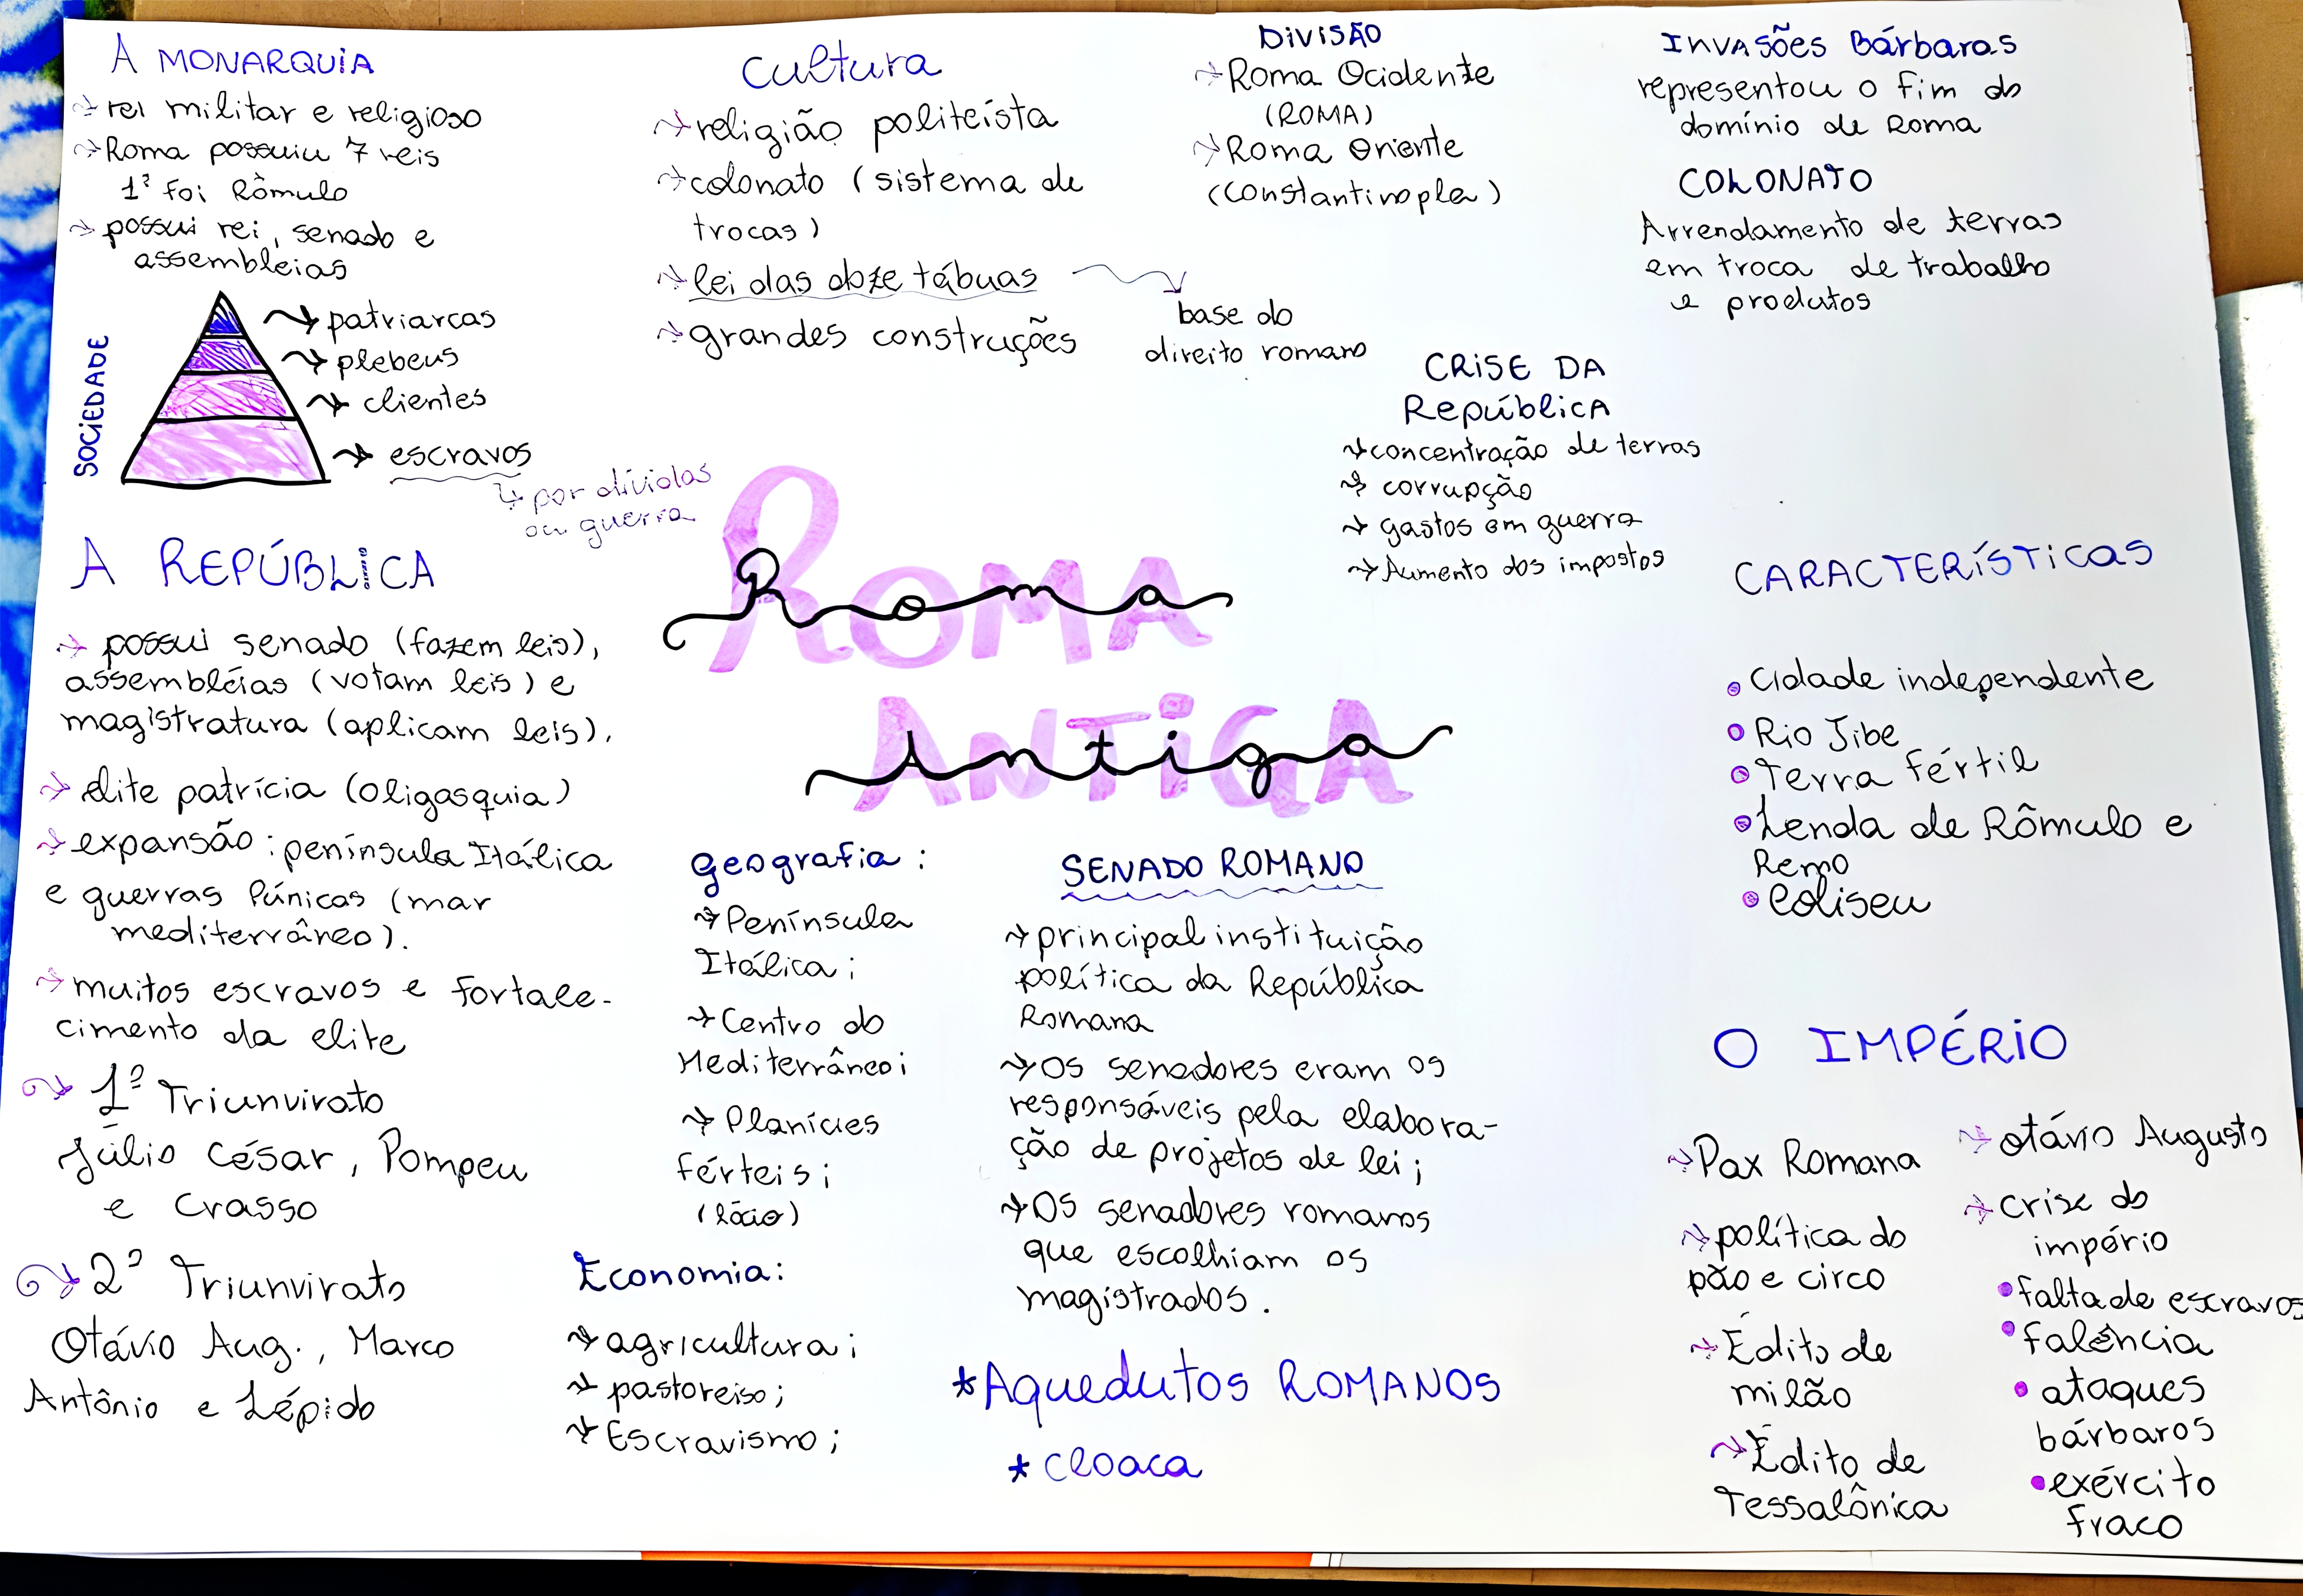 A MONARQUIA
rei militar e religioso
Roma possuiu 7 reis
1º foi Rômulo
possui rei, senado e
assembleias
SOCIEDADE
patriarcas
plebeus
clientes
escravos
por dívidas
ou guerra
A REPÚBLICA
possui senado (fazem leis),
assembléias (votam leis) e
magistratura (aplicam leis).
elite patrícia (oligasquia)
expansão: península Itálica
e guerras Púnicas (mar
mediterrâneo).
muitos escravos e fortale-
cimento da elite
1º Triunvirato
Júlio César, Pompeu
e Crasso
2º Triunvirato
Otávio Aug., Marco
Antônio e Lépido
Cultura
religião politeísta
colonato (sistema de
trocas)
lei das doze tábuas
base do
direito romano
grandes construções
DIVISÃO
Roma Ocidente
(ROMA)
Roma Oriente
(Constantinopla)
INVASÕES BÁRBARAS
representou o fim do
domínio de Roma
COLONATO
Arrendamento de terras
em troca de trabalho
e produtos
CRISE DA
REPÚBLICA
concentração de terras
corrupção
gastos em guerra
Aumento dos impostos
ROMA
Roma
ANTIGA
Antiga
Geografia:
Península
Itálica;
Centro do
Mediterrâneo;
Planícies
férteis;
(lácio)
Economia:
agricultura;
pastoreiso;
Escravismo;
SENADO ROMANO
principal instituição
política da República
Romana
Os senadores eram os
responsáveis pela elabora-
ção de projetos de lei;
Os senadores romanos
que escolhiam os
magistrados.
*Aquedutos ROMANOS
*Cloaca
CARACTERÍSTICAS
Cidade independente
Rio Tibe
Terra fértil
Lenda de Rômulo e
Remo
Coliseu
O IMPÉRIO
Pax Romana
política do
pão e circo
Édito de
milão
Édito de
Tessalônica
Otávio Augusto
Crise do
império
falta de escravos
falência
ataques
bárbaros
exército
fraco